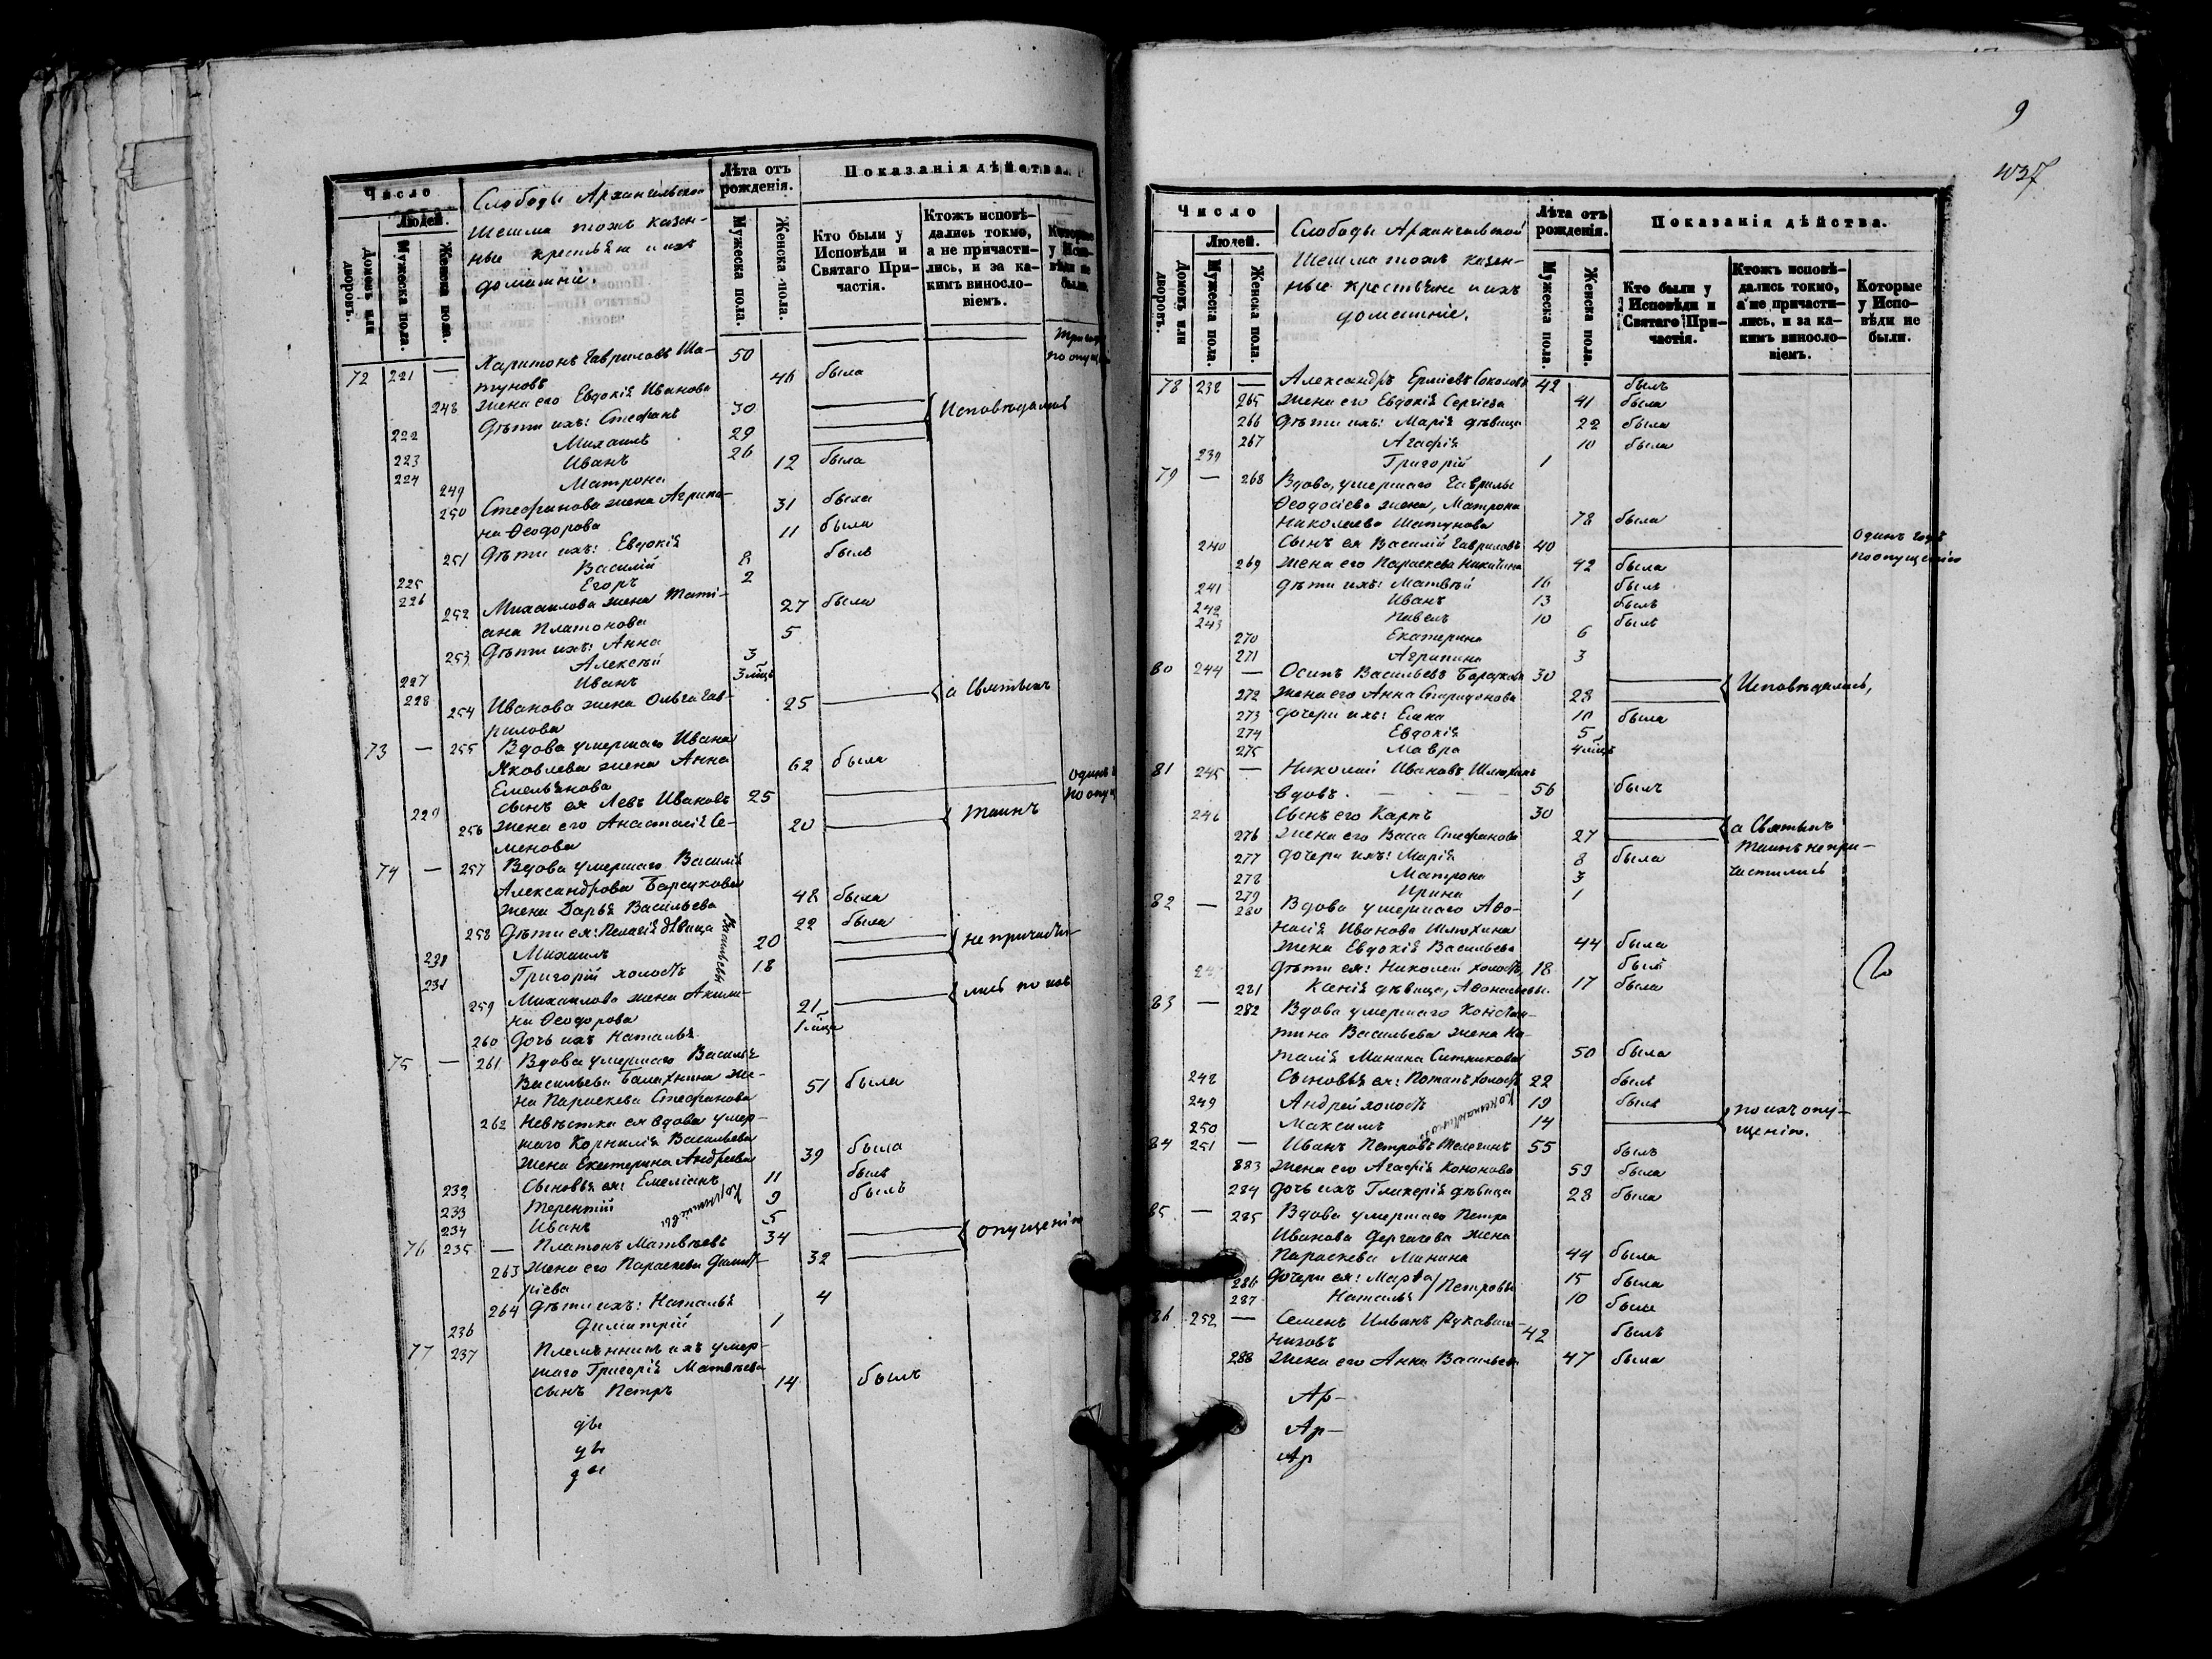 Число
Людей.
Домовъ или дворовъ.
Мужеска пола.
Женска пола.
Слободы Архангельской
Шешма тожъ казен-
ные крестьяне и ихъ
домашніе.
Лѣта отъ рожденія.
Мужеска пола.
Женска пола.
Показанія дѣйства.
Кто были у Исповѣди и Святаго При-частія.
Ктожъ исповѣ-дались токмо, а не причасти-лись, и за ка-кимъ винosло-віемъ.
Которые у Испо-вѣди не были.
72 221 — Харитонъ Гавриловъ Ша- 50
туновъ
248 жена его Евдокія Иванова 46 была
222 Дѣти ихъ: Стефанъ 30 Исповѣдались
223 Михаилъ 29
224 Иванъ 26
249 Матрона 12 была
250 Стефанова жена Агрипи- 31 была
на Ѳеодорова
251 Дѣти ихъ: Евдокія 11 была
225 Василій 8 былъ
226 Егоръ 2
252 Михаилова жена Тати- 27 была
ана Платонова
253 Дѣти ихъ: Анна 5
227 Алексѣй 3
228 Иванъ 3 мѣц
254 Иванова жена Ольга Гав- 25 а Святыхъ
рилова
73 — 255 Вдова умершаго Ивана
Яковлева жена Анна 62 была
Емельянова
229 сынъ ея Левъ Ивановъ 25 одинъ
256 жена его Анастасія Се- 20 таинъ
менова
74 — 257 Вдова умершаго Василія
Александрова Барсукова
жена Дарья Васильева 48 была
258 Дѣти ея: Пелагія дѣвица 22 была
230 Михаилъ 20 не причасти-
231 Григорій холостъ 18
Васильевы
259 Михаилова жена Акили- 21 лись по ихъ
на Ѳеодорова
260 Дочь ихъ Наталья 1 мѣца
75 — 261 Вдова умершаго Василья
Васильева Балахнина же-
на Параскева Стефанова 51 была
262 Невѣстка ея вдова умер-
шаго Корнилія Васильева
жена Екатерина Андреева 39 была
232 Сыновья ея: Емеліанъ 11 былъ
233 Терентій 9 былъ
234 Иванъ 5
Корниліевы
76 235 — Платонъ Матвѣевъ 34 опущенію
263 жена его Параскева Димит- 32
ріева
264 Дѣти ихъ: Наталья 4
236 Димитрій 1
77 237 Племянникъ ихъ умер-
шаго Григорія Матвѣева
сынъ Петръ 14 былъ
ды
ды
ды
9
Число
Людей.
Домовъ или дворовъ.
Мужеска пола.
Женска пола.
Слободы Архангельской
Шешма тожъ казен-
ные крестьяне и ихъ
домашніе.
Лѣта отъ рожденія.
Мужеска пола.
Женска пола.
Показанія дѣйства.
Кто были у Исповѣди и Святаго При-частія.
Ктожъ исповѣ-дались токмо, а не причасти-лись, и за ка-кимъ винosло-віемъ.
Которые у Испо-вѣди не были.
78 238 — Александръ Ермиевъ Соколовъ 42 былъ
265 жена его Евдокія Сергіева 41 была
266 Дѣти ихъ: Марія дѣвица 22 была
267 Агафія 10 была
239 Григорій 1
79 — 268 Вдова, умершаго Гаврилы
Ѳеодосіева жена, Матрона
Николаева Шатунова 78 была
240 Сынъ ея Василій Гавриловъ 40 одинъ годъ
по опущенію
269 жена его Параскева Никитина 42 была
241 дѣти ихъ: Матвѣй 16 былъ
242 Иванъ 13 былъ
243 Павелъ 10 былъ
270 Екатерина 6
271 Агрипина 3
80 244 — Осипъ Васильевъ Барсуковъ 30 Исповѣдались,
272 жена его Анна Спиридонова 28
273 дочери ихъ: Елена 10 была
274 Евдокія 5
275 Мавра 4 мѣц
81 245 — Николай Ивановъ Шлюхинъ
вдовъ. 56 былъ
246 Сынъ его Карпъ 30 а Святыхъ
276 жена его Васа Стефанова 27 Таинъ не при-
277 дочери ихъ: Марія 8 была частились
278 Матрона 3
279 Ирина 1
82 — 280 Вдова умершаго Аѳо-
насія Иванова Шлюхина
жена Евдокія Васильева 44 была
247 Дѣти ея: Николай холостъ 18 былъ
281 Ксенія дѣвица, Аѳонасьевы. 17 была
83 — 282 Вдова умершаго Констан-
тина Васильева жена На-
талія Минина Ситникова 50 была
248 Сыновья ея: Потапъ холостъ 22 былъ
249 Андрей холостъ 19 былъ
250 Максимъ 14 по ихъ опу-
щенію.
Константиновы
84 251 — Иванъ Петровъ Телегинъ 55 былъ
883 жена его Агафія Кононова 59 была
284 дочь ихъ Гликерія дѣвица 28 была
85 — 285 Вдова умершаго Петра
Иванова Дергачева жена
Параскева Минина 44 была
286 Дочери ея: Марѳа 15 была
287 Наталья Петровы 10 была
86 252 — Семенъ Ильинъ Рукавиш-
никовъ 42 былъ
288 жена его Анна Васильева 47 была
Ар-
Ар-
Ар